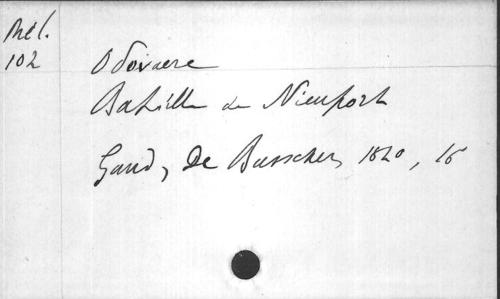 Mél.
102
Odevaere
Bataille de Nieuport
Gand, De Busscher, 1820, 16